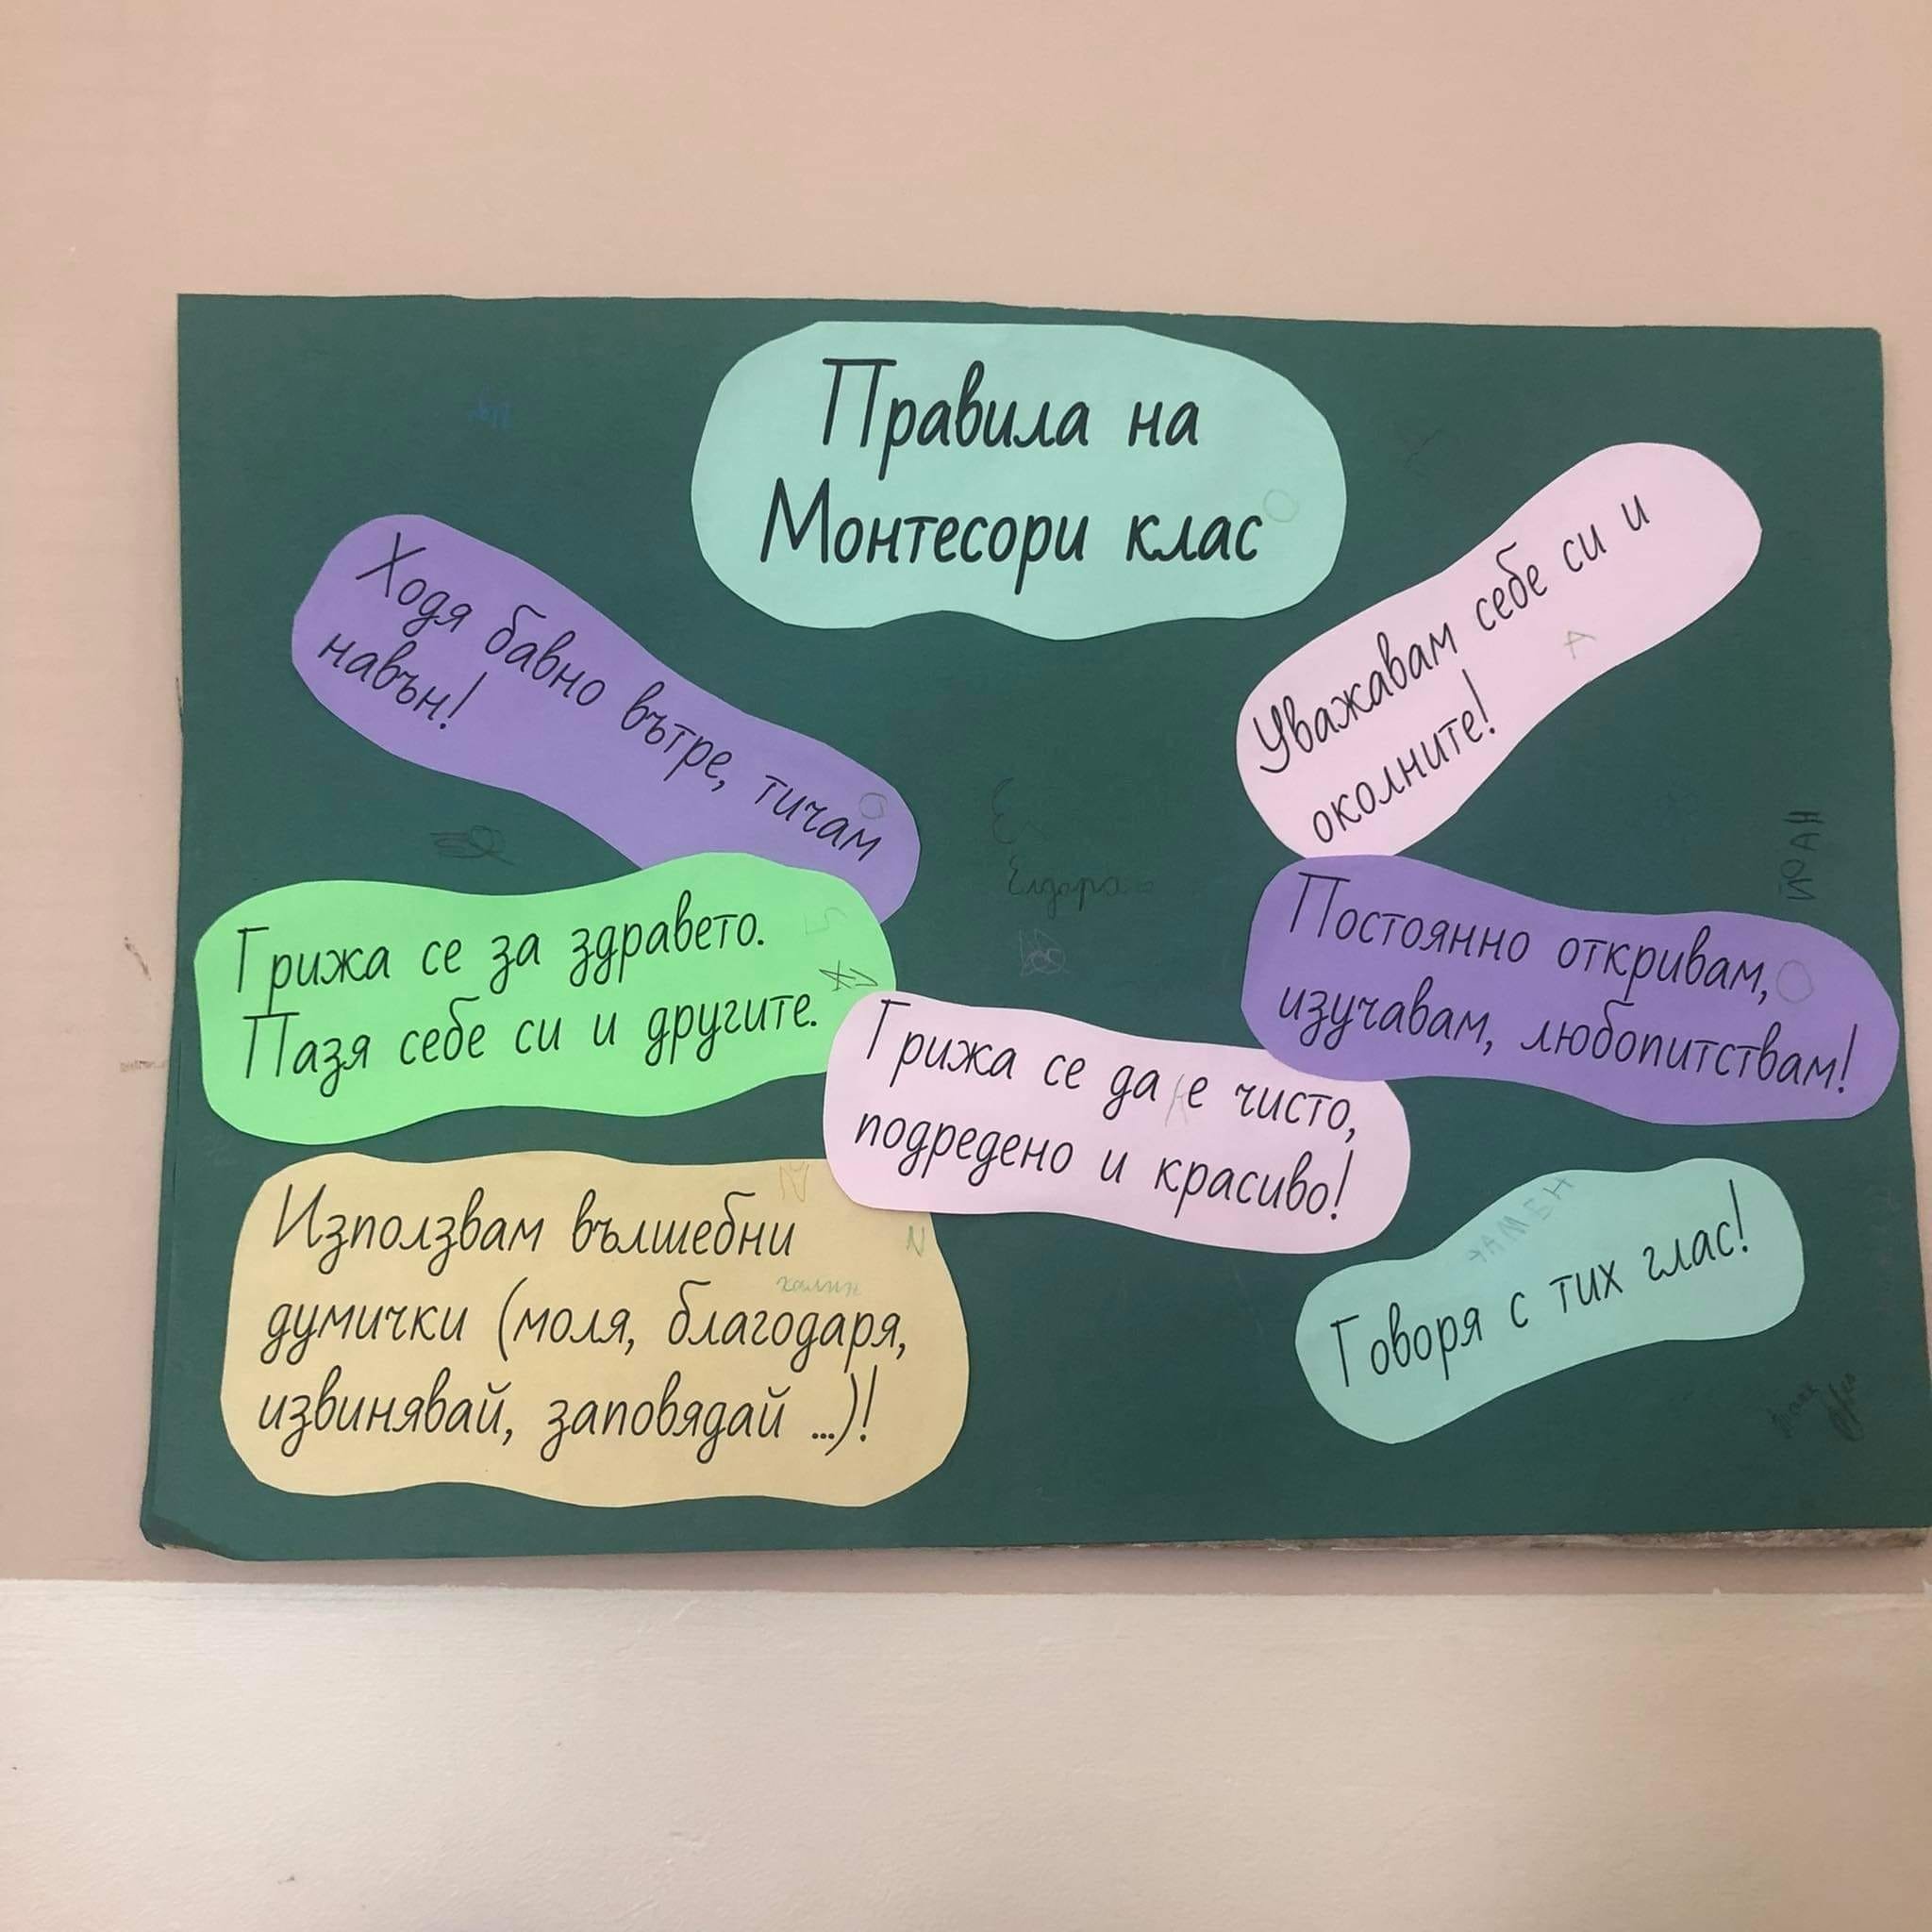 Правила на
Монтесори клас
Ходя бавно вътре, тичам
навън!
Уважавам себе си и
околните!
Грижа се за здравето.
Пазя себе си и другите.
Постоянно откривам,
изучавам, любопитствам!
Грижа се да е чисто,
подредено и красиво!
Използвам вълшебни
думички (моля, благодаря,
извинявай, заповядай ...)!
Говоря с тих глас!
ЙОАН
Елдора
калин
КАМЕН